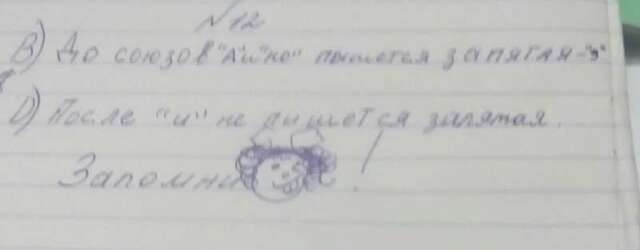 №12
B) До союзов "а" и "но" пишется запятая - ","
D) После "и" не пишется запятая.
Запомни!